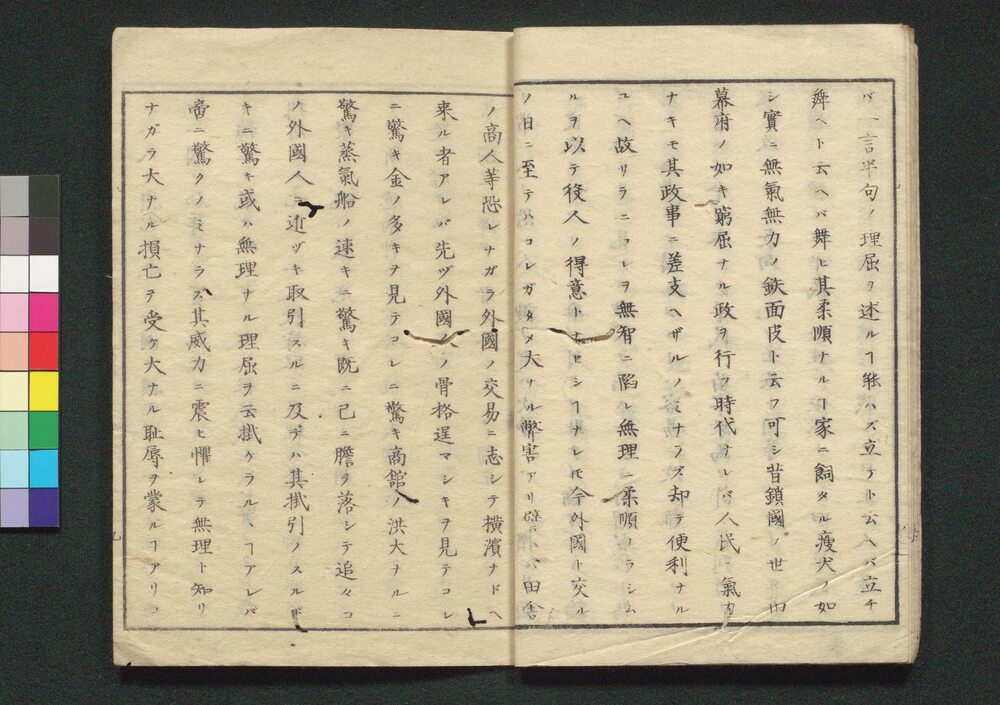 バ一言半句ノ理屈ヲ述ルヿ能ハズ立テト云ヘバ立チ
舞ヘト云ヘバ舞ヒ其柔順ナルヿ家ニ飼タル瘦犬ノ如
シ實ニ無氣無力ノ鉄面皮ト云フ可シ昔鎖國ノ世ニ旧
幕府ノ如キ窮屈ナル政ヲ行フ時代ナレバ人民ニ氣力
ナキモ其政事ニ差支ヘザルノミナラズ却テ便利ナル
ユヘ故サラニコレヲ無智ニ陷レ無理ニ柔順ナラシム
ルヲ以テ役人ノ得意トナセシヿナレ𪜈今外國ト交ル
ノ日ニ至テハコレガタメ大ナル弊害アリ譬ヘバ田舎
ノ商人等恐レナガラ外國ノ交易ニ志シテ橫濱ナドヘ
来ル者アレバ先ヅ外國人ノ骨格逞マシキヲ見テコレ
ニ驚キ金ノ多キヲ見テコレニ驚キ商舘ノ洪大ナルニ
驚キ蒸氣船ノ速キニ驚キ既ニ已ニ膽ヲ落シテ追々コ
ノ外國人ニ近ヅキ取引スルニ及デハ其掛引ノスルド
キニ驚キ或ハ無理ナル理屈ヲ云掛ケラルヽヿアレバ
啻ニ驚クノミナラズ其威力ニ震ヒ懼レテ無理ト知リ
ナガラ大ナル損亡ヲ受ケ大ナル恥辱ヲ蒙ルヿアリコ